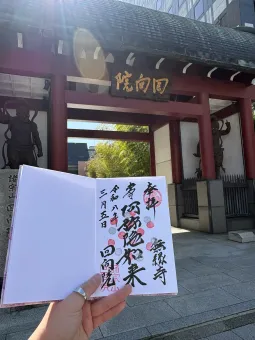 回向院
奉拝
無縁寺
阿弥陀如来
令和八年
三月五日
回向院